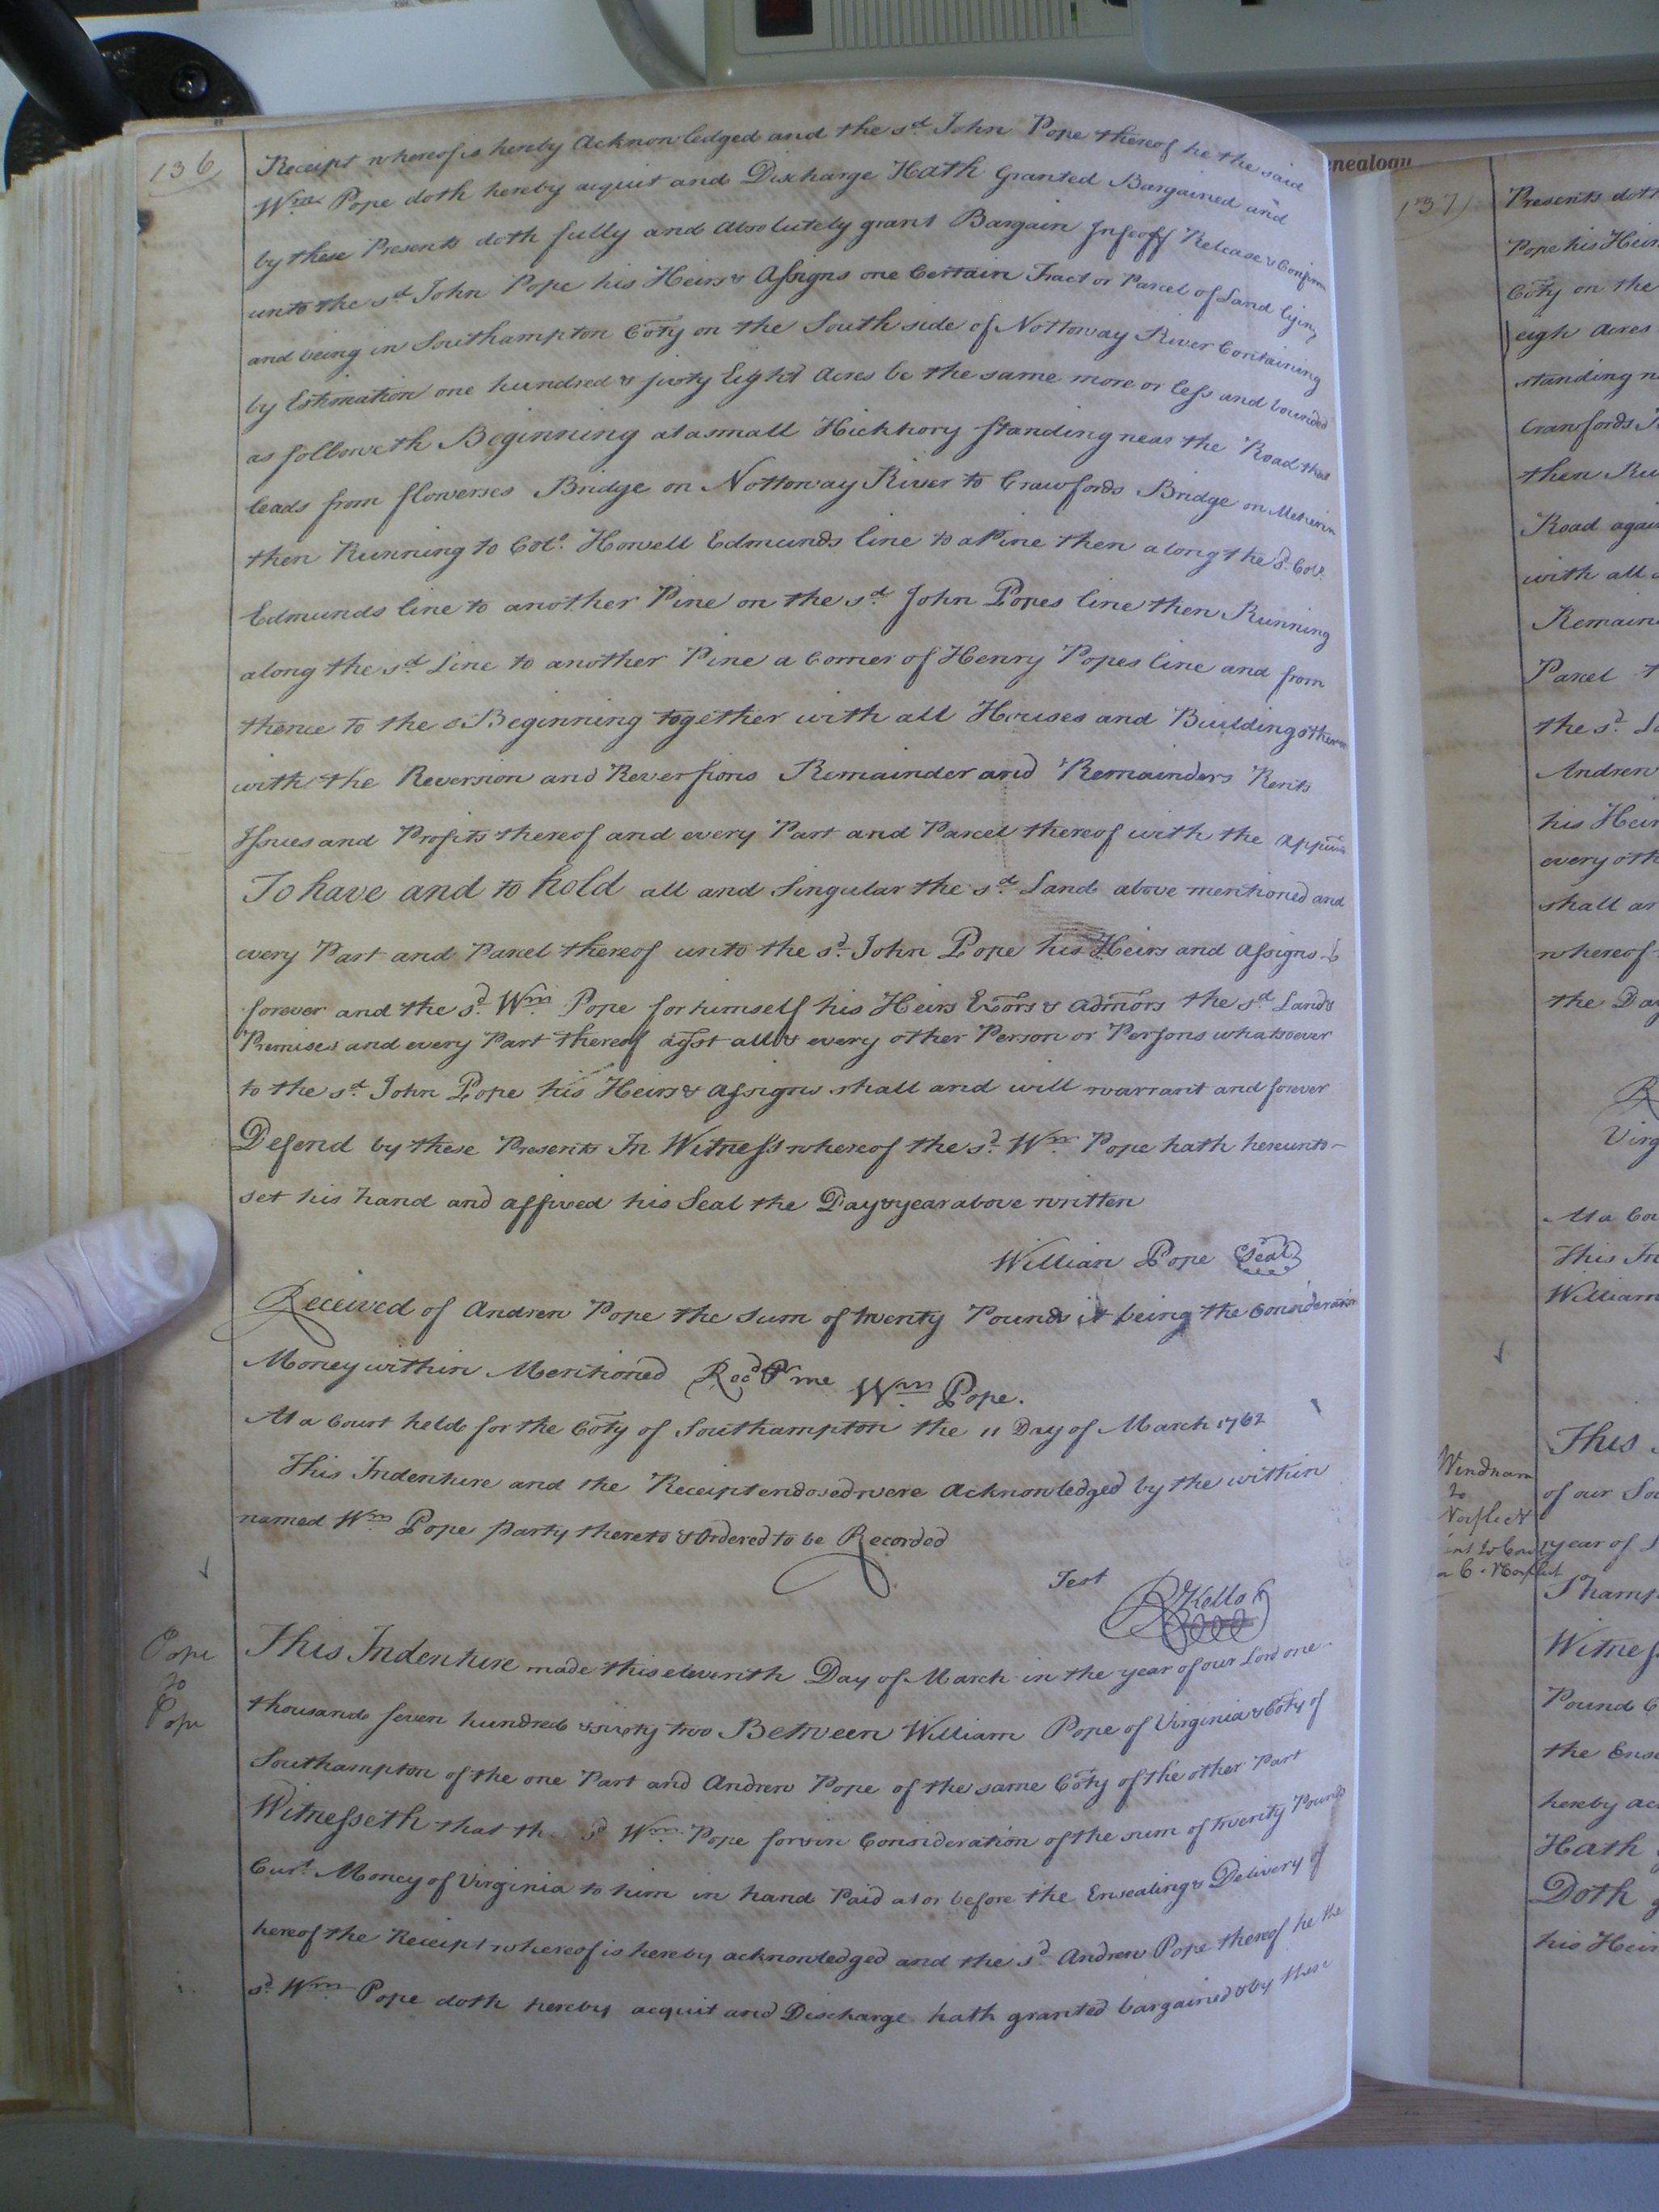 136
Receipt whereof is hereby Acknowledged and the sd. John Pope thereof he the said
Wm. Pope doth hereby acquit and Discharge Hath Granted Bargained and
by these Presents doth fully and Absolutely grant Bargain Infeoff Release & Confirm
unto the sd. John Pope his Heirs & Assigns one Certain Tract or Parcel of Land lying
and being in Southampton Coty on the South side of Nottoway River Containing
by Estimation one hundred & sixty Eight Acres be the same more or less and bounded
as followeth Beginning at a small Hickhory standing near the Road that
leads from flowerses Bridge on Nottoway River to Crawfords Bridge on Meherrin
then Running to Colo. Howell Edmunds line to a Pine then along the sd. Colo.
Edmunds line to another Pine on the sd. John Popes line then Running
along the sd. Line to another Pine a Corner of Henry Popes line and from
thence to the Beginning together with all Houses and Buildings thereon
with the Reversion and Reversions Remainder and Remainders Rents
Issues and Profits thereof and every Part and Parcel thereof with the
To have and to hold all and Singular the sd. Land above mentioned and
every Part and Parcel thereof unto the sd. John Pope his Heirs and Assigns
forever and the sd. Wm. Pope for himself his Heirs Exors & Admors the sd. Land &
Premises and every Part thereof agst all & every other Person or Persons whatsoever
to the sd. John Pope his Heirs & Assigns shall and will warrant and forever
Defend by these Presents In Witness whereof the sd. Wm. Pope hath hereunto
set his hand and affixed his Seal the Day & year above written
William Pope Seal
Received of Andrew Pope the Sum of twenty Pounds it being the Consideration
Money within Mentioned Recd. P me Wm. Pope.
At a Court held for the Coty of Southampton the 11 Day of March 1762
This Indenture and the Receipt endosed were Acknowledged by the within
named Wm. Pope party thereto & Ordered to be Recorded
Test
R Kello
Pope
to
Pope
This Indenture made this eleventh Day of March in the year of our Lord one
thousand seven hundred & sixty two Between William Pope of Virginia & Coty of
Southampton of the one Part and Andrew Pope of the same Coty of the other Part
Witnesseth that sd. Wm. Pope for & in Consideration of the sum of twenty Pounds
Curt. Money of Virginia to him in hand Paid at or before the Ensealing & Delivery of
hereof the Receipt whereof is hereby acknowledged and the sd. Andrew Pope thereof he the
sd. Wm. Pope doth hereby acquit and Discharge hath granted bargained & by these
enealogy
137
Presents doth
Pope his Heir
Coty on the
eigh Acres
standing n
Crawfords
then Ru
Road again
with all
Remain
Parcel
the sd. La
Andrew
his Heir
every oth
shall an
whereof
the Day
Virg
At a Cou
This In
William
Windham
to
Norfleet
This
of our Lo
year of
Thamp
Witness
Pound C
the Ens
hereby ac
Hath
Doth g
his Heir